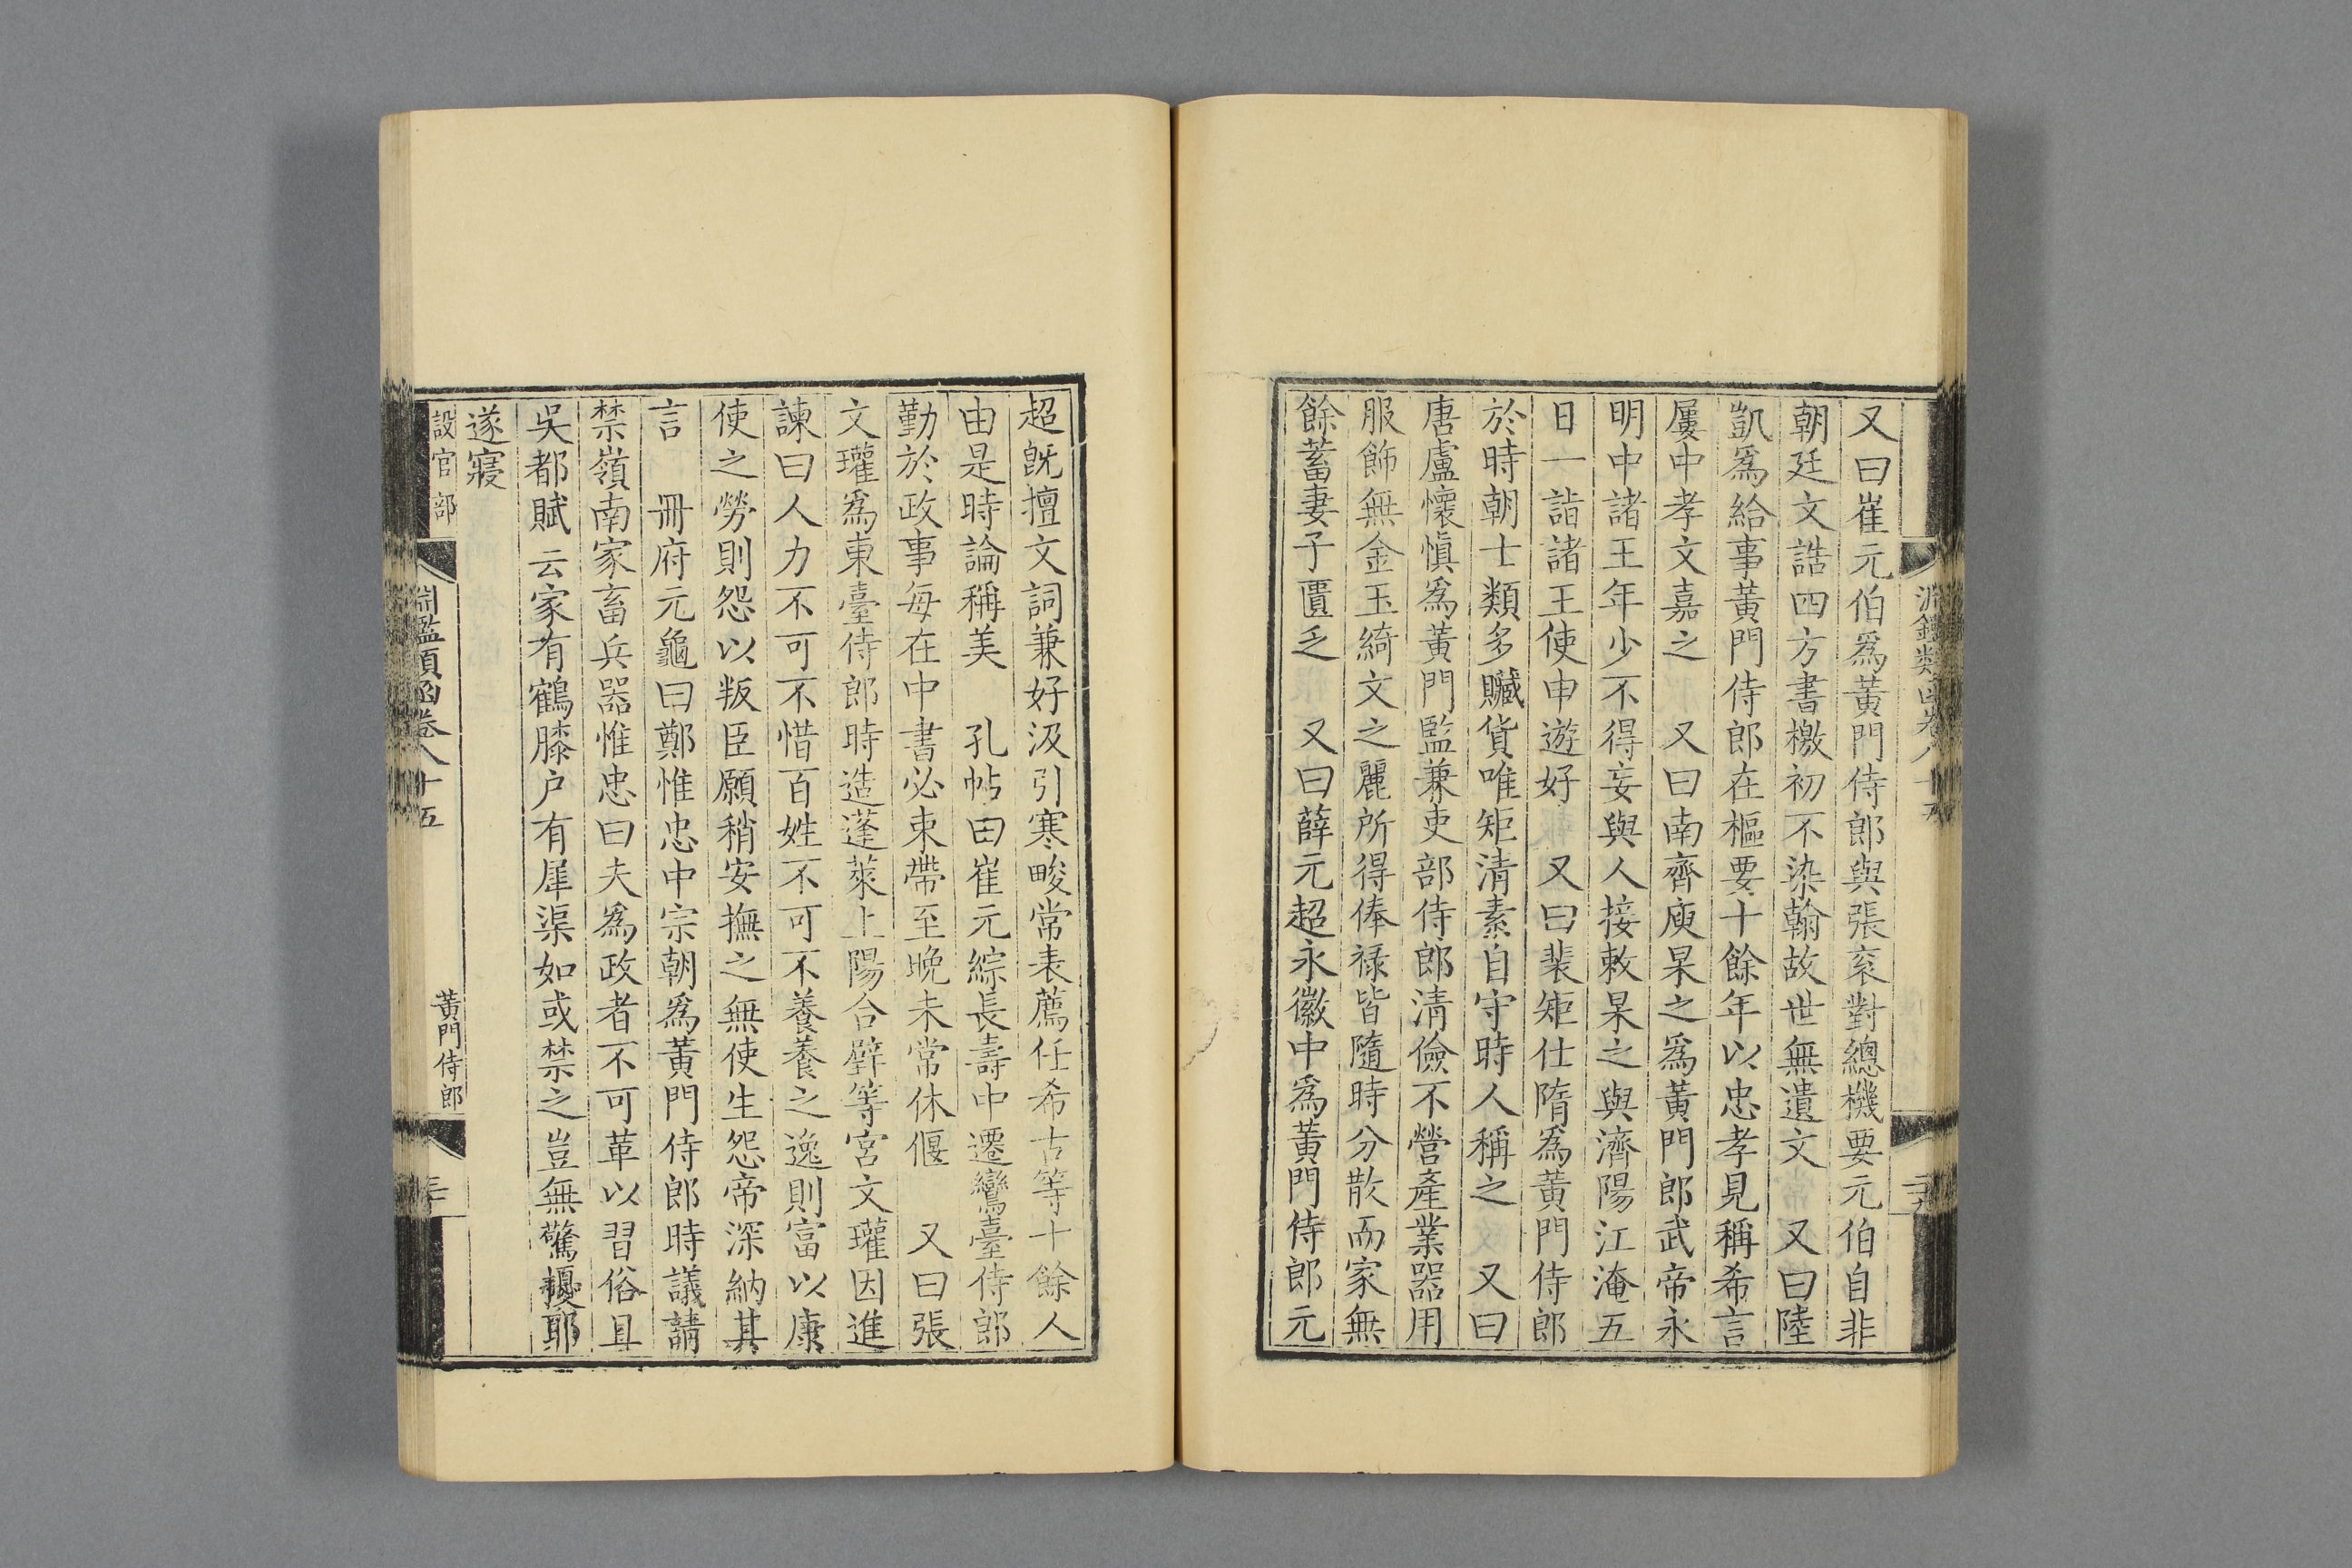 又曰崔元伯爲黃門侍郎與張衮對總機要元伯自非
朝廷文誥四方書檄初不染翰故世無遺文　又曰陸
凱爲給事黃門侍郎在樞要十餘年以忠孝見稱希言
屢中孝文嘉之　又曰南齊庾杲之爲黃門郎武帝永
明中諸王年少不得妄與人接敕杲之與濟陽江淹五
日一詣諸王使申遊好　又曰裴矩仕隋爲黃門侍郎
於時朝士類多贓貨唯矩清素自守時人稱之　又曰
唐盧懷慎爲黃門監兼吏部侍郎清儉不營產業器用
服飾無金玉綺文之麗所得俸祿皆隨時分散而家無
餘蓄妻子匱乏　又曰薛元超永徽中爲黃門侍郎元
超旣擅文詞兼好汲引寒畯常表薦任希古等十餘人
由是時論稱美　孔帖曰崔元綜長壽中遷鸞臺侍郎
勤於政事每在中書必束帶至晚未常休偃　又曰張
文瓘爲東臺侍郎時造蓬萊上陽合璧等宮文瓘因進
諫曰人力不可不惜百姓不可不養養之逸則富以康
使之勞則怨以叛臣願稍安撫之無使生怨帝深納其
言　冊府元龜曰鄭惟忠中宗朝爲黃門侍郎時議請
禁嶺南家畜兵器惟忠曰夫爲政者不可革以習俗且
吳都賦云家有鶴膝户有犀渠如或禁之豈無驚擾耶
遂寢
設官部
淵鑑類函卷八十五
黃門侍郎
三十